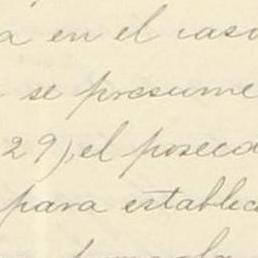 a en el caso
se presume
29), el poseed
para establec